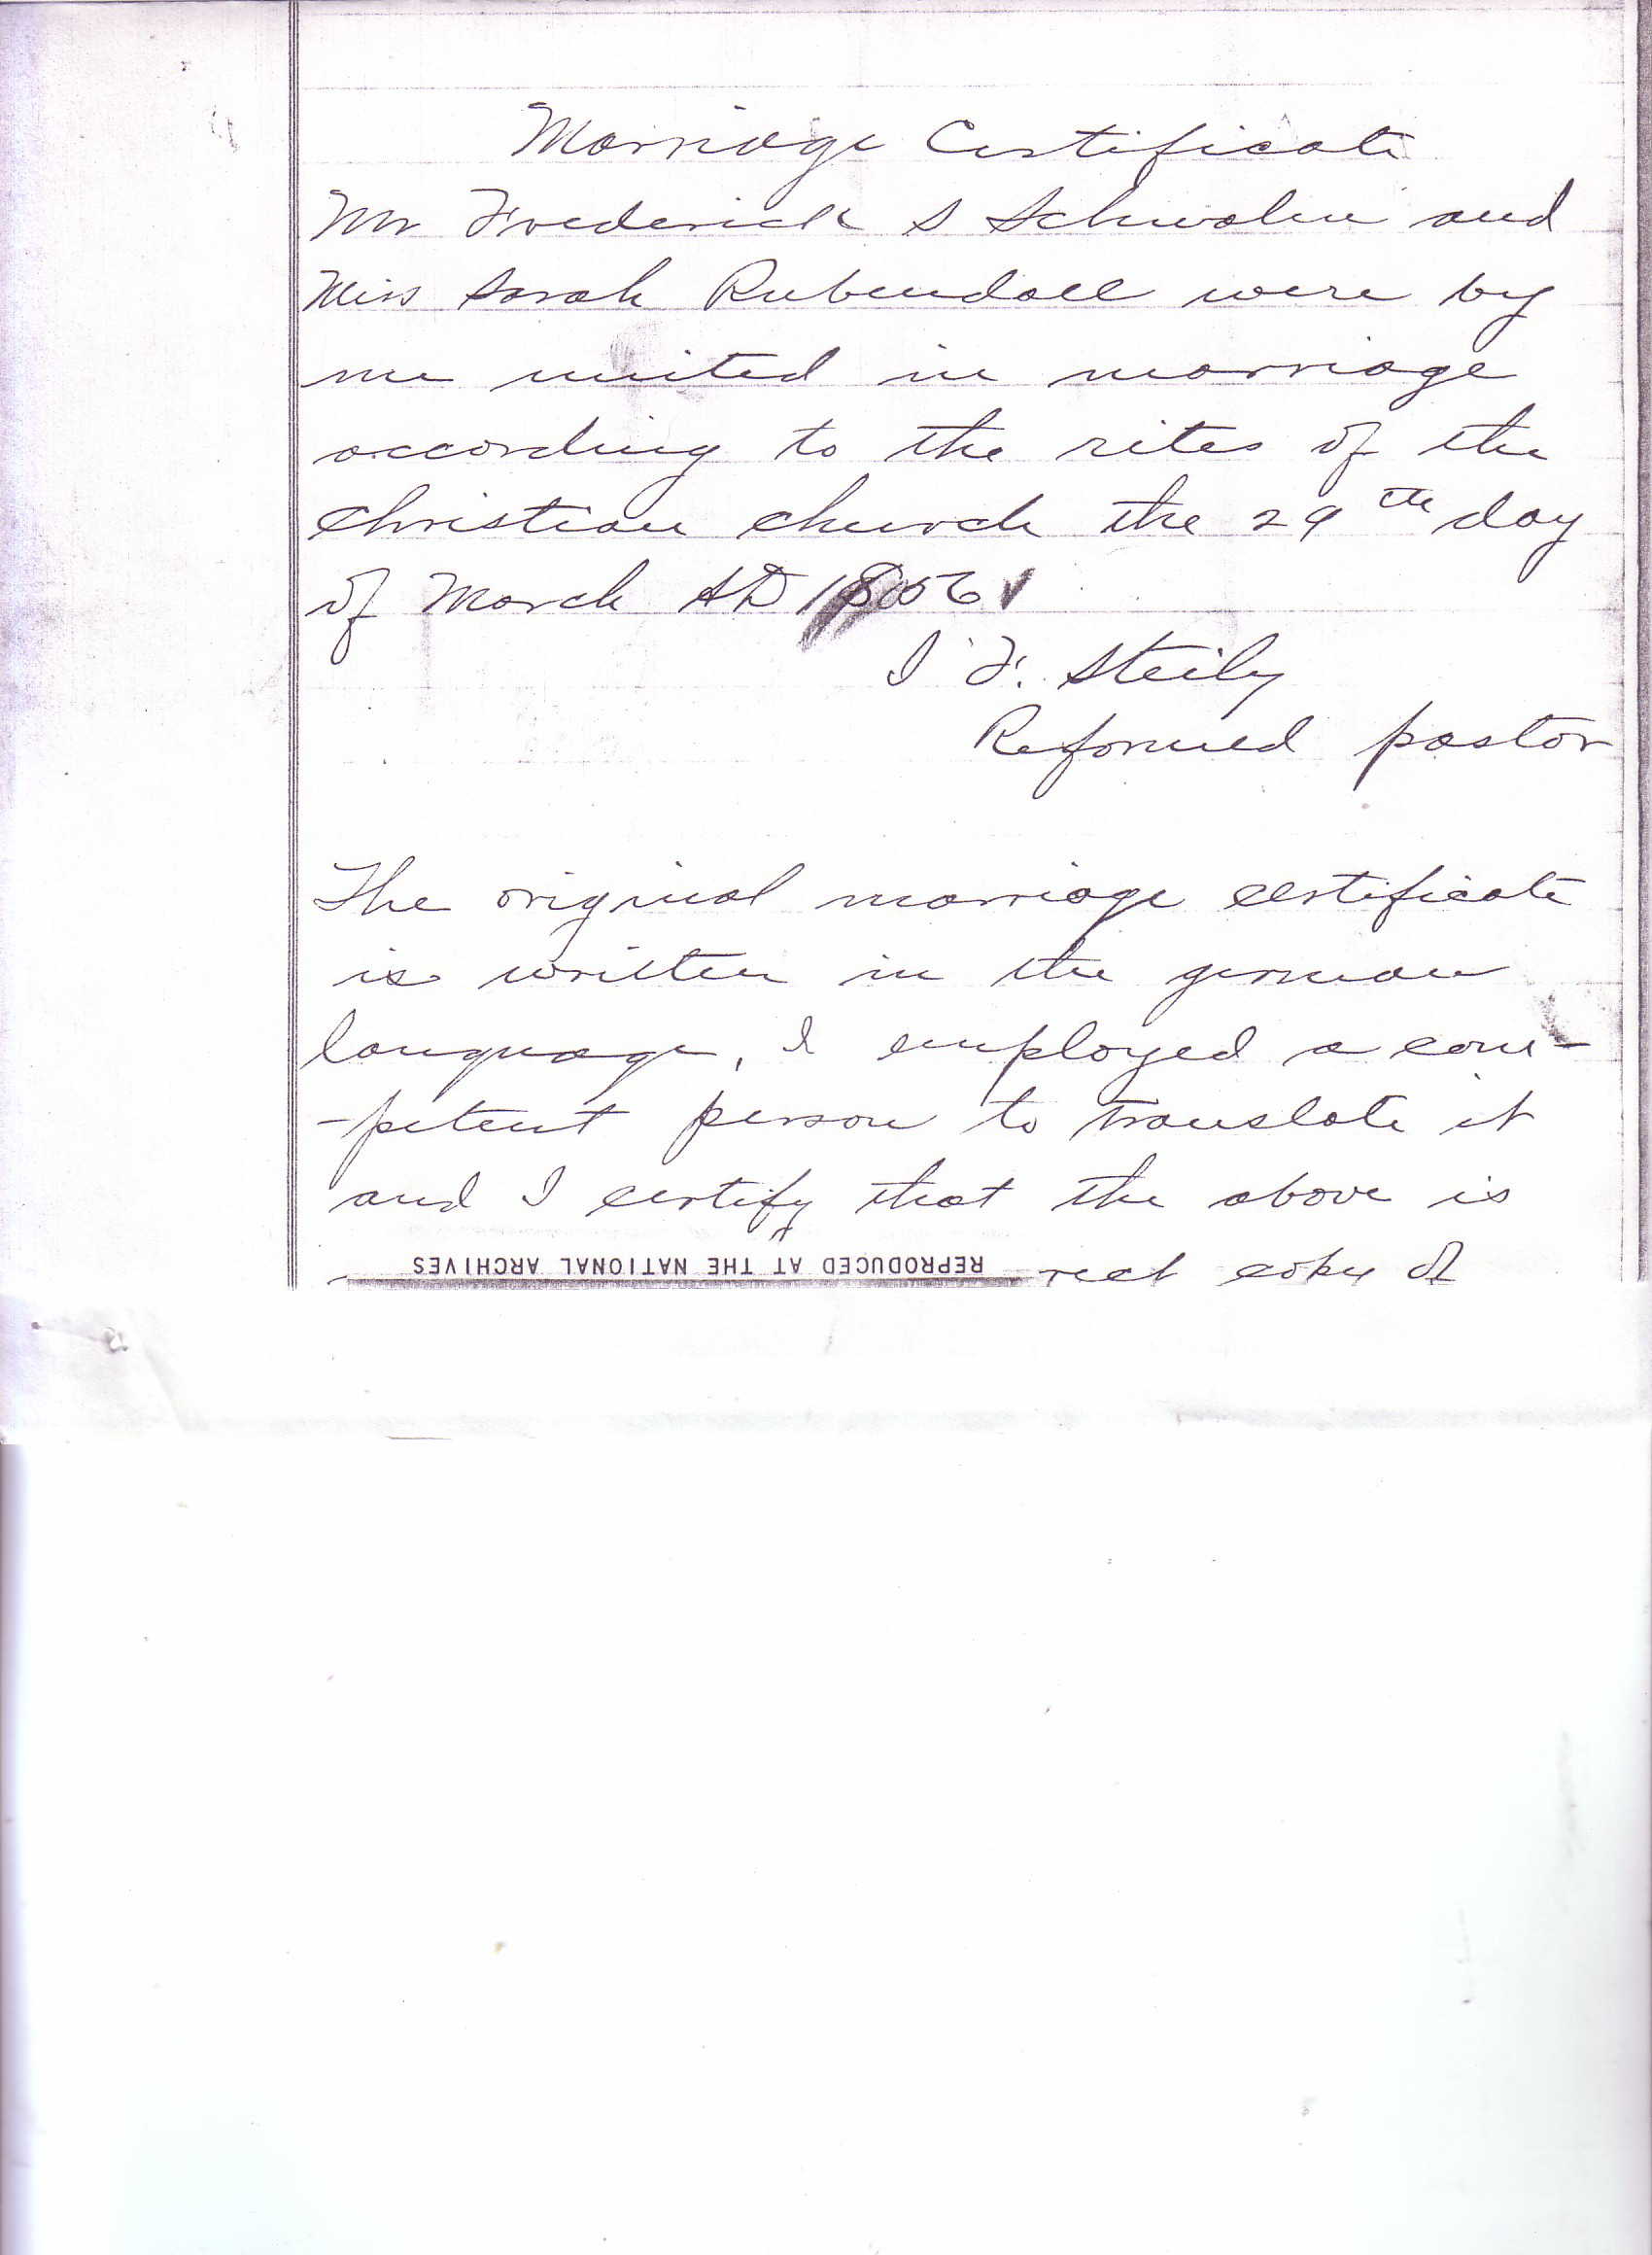 Marriage Certificate
Mr Frederick S Schwalm and
Miss Sarah Rubendall were by
me united in marriage
according to the rites of the
Christian church the 29th day
of March AD 1856
I F. Steily
Reformed pastor
The original marriage certificate
is written in the german
language, I employed a com-
-petent person to translate it
and I certify that the above is
rect copy of
REPRODUCED AT THE NATIONAL ARCHIVES